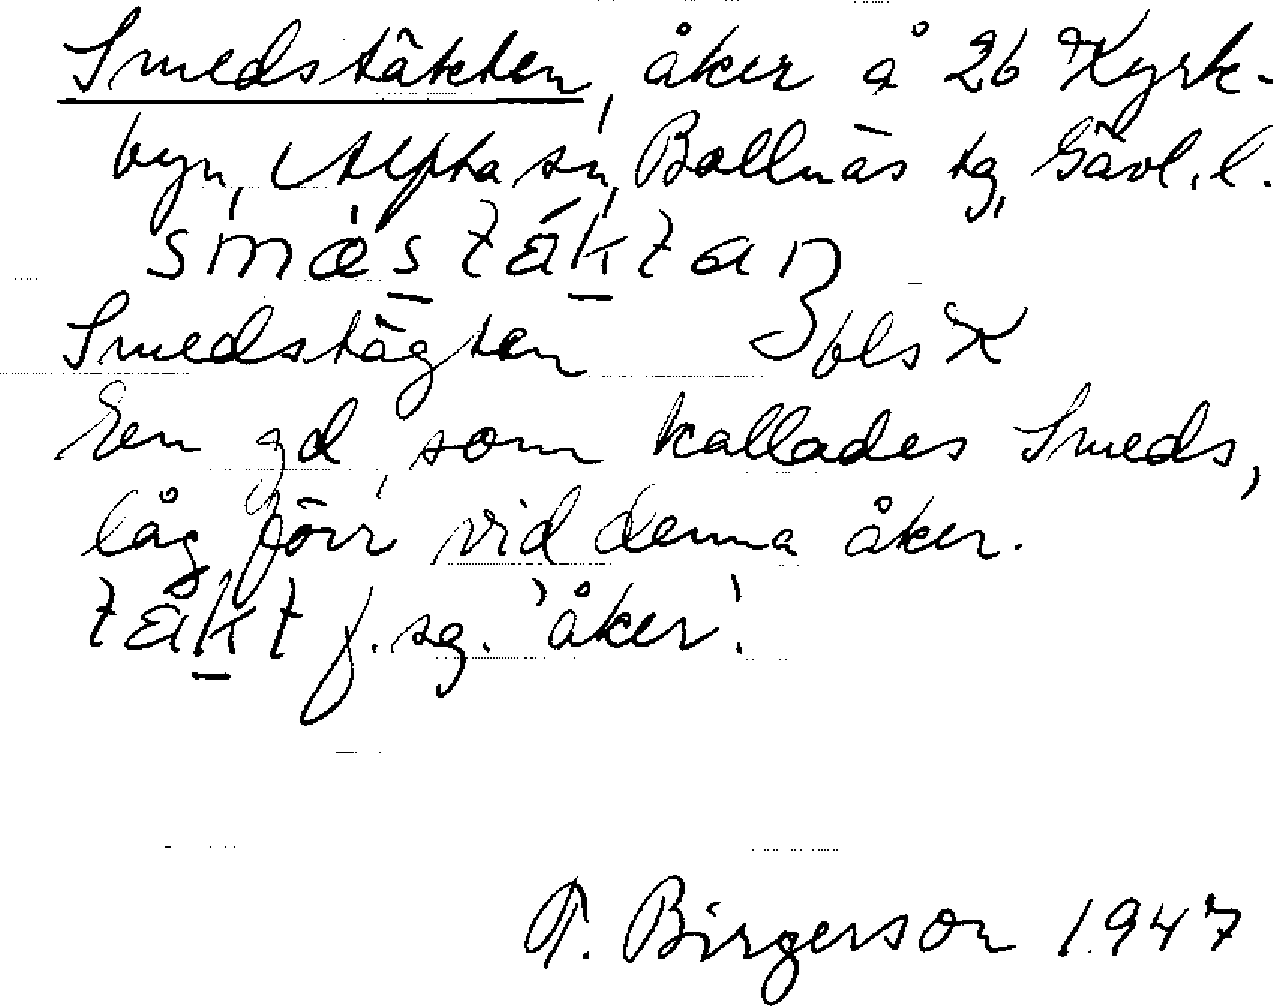 Smedstäkten, åker å 26 Kyrk-
byn, Alfta sn, Bollnäs tg, Gävl. l.
smæstäktan
Smedstägten bls K
En gd, som kallades Smeds,
låg förr vid denna åker.
täkt f. sg. 'åker'.
Birgerson 1947